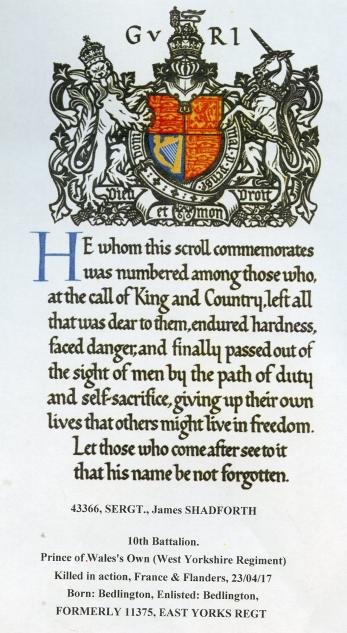 G V R I
Honi soit qui mal y pense
Dieu et mon Droit
HE whom this scroll commemorates
was numbered among those who,
at the call of King and Country, left all
that was dear to them, endured hardness,
faced danger, and finally passed out of
the sight of men by the path of duty
and self-sacrifice, giving up their own
lives that others might live in freedom.
Let those who come after see to it
that his name be not forgotten.
43366, SERGT., James SHADFORTH
10th Battalion.
Prince of Wales's Own (West Yorkshire Regiment)
Killed in action, France & Flanders, 23/04/17
Born: Bedlington, Enlisted: Bedlington,
FORMERLY 11375, EAST YORKS REGT